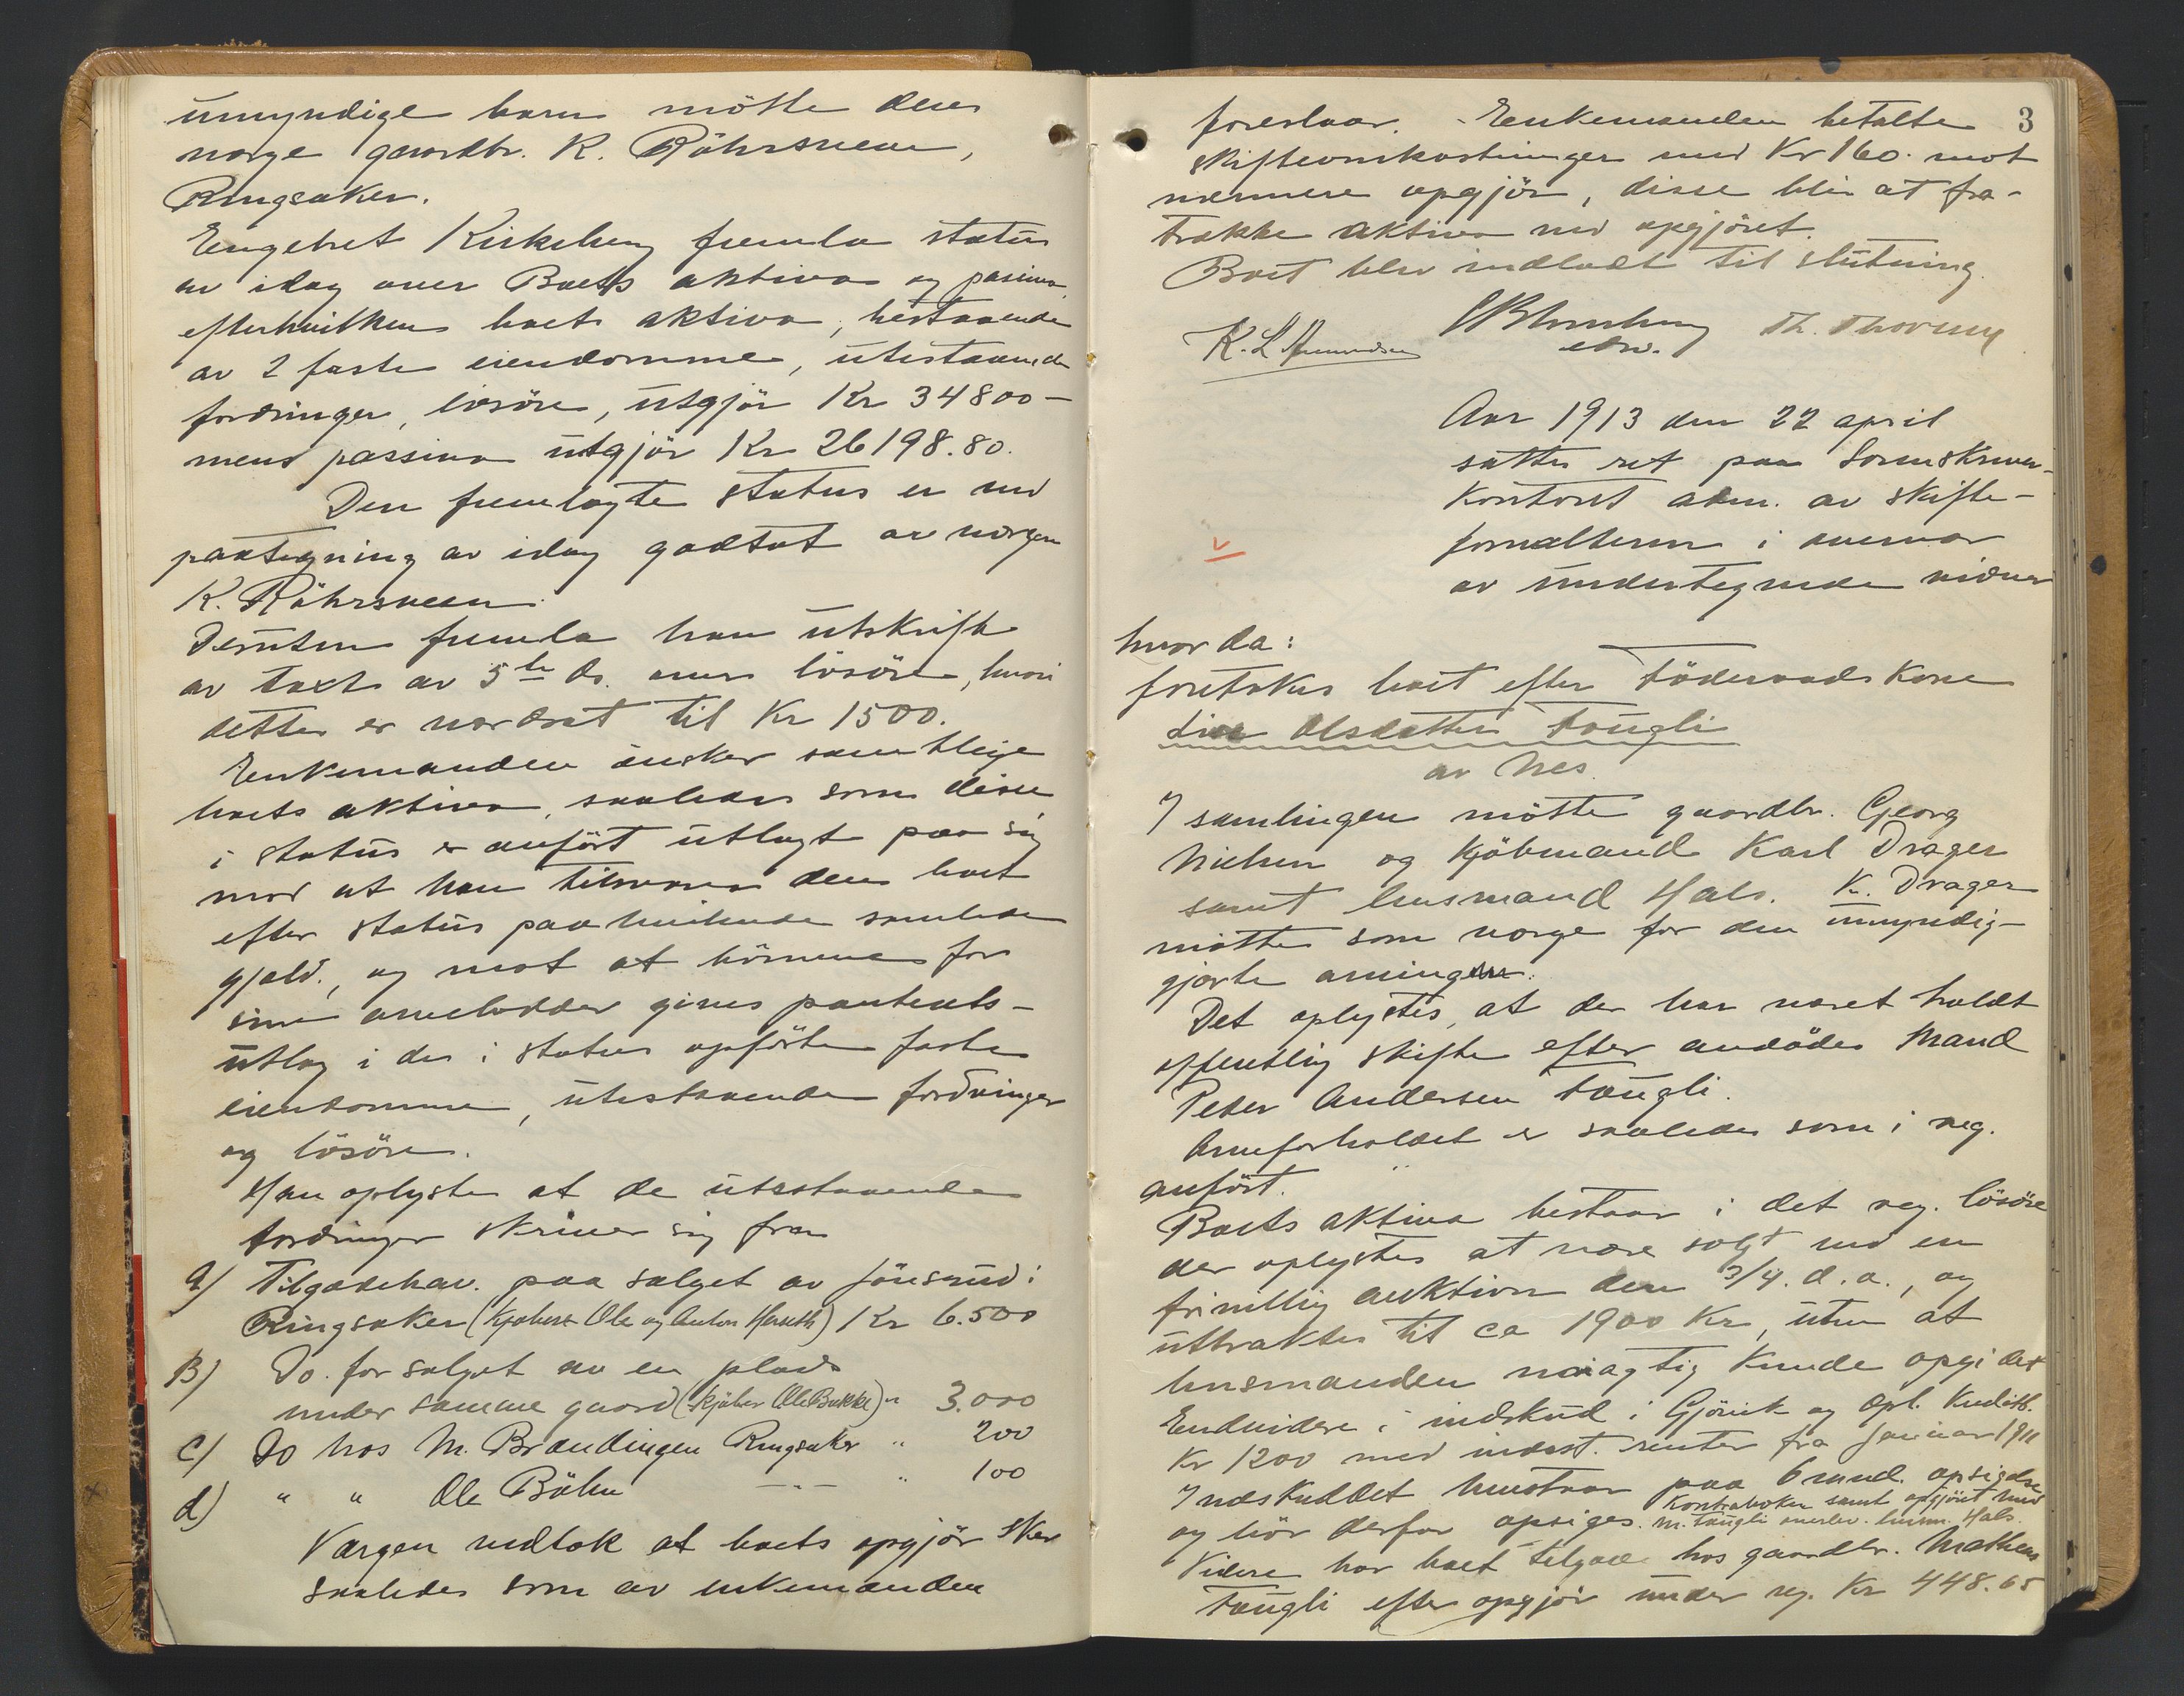 umyndige barn mötte deres
verge gaardbr. K. Röhrsveen,
Ringsaker.
Engebret Kirkeberg fremla status
av idag over Boets aktiva og passiva,
efter hvilken boets aktiva, bestaaende
av 2 faste eiendomme, utestaaende
fordringer, lösöre, utgjör Kr 34800 –
mens passiva utgjör Kr 26198.80.
Den fremlagte status er ved
paategning av idag godtat av vergen
K. Röhrsveen.
Desuten fremla han utskrift
av takst av 5te ds. over lösöre, hvori
dette er vurdert til Kr 1500.
Enkemanden önsker samtlige
boets aktiva, saaledes som disse
i status er anfört utlagt paa sig
mot at han tilsvarer den boet
efter status paahvilende samlede
gjæld, og mot at börnene for
sine arvelodder gives panterets-
utlæg i de i status opförte faste
eiendomme, utestaaende fordringer
og lösöre.
Han oplyste at de utestaaende
fordringer skriver sig fra
a) Tilgodehav. paa salget av Jönsrud i
Ringsaker (Kjöbere Ole og Anton Hauth) Kr 6.500
B) Do. for salget av en plads
under samme gaard (Kjöber Ole Bakke) " 3.000
C) Do hos M. Brændingen Ringsaker " 200
d) " " Ole Böhn — " — " 100
Værgen vedtok at boets opgjör sker
saaledes som av enkemanden
3
foreslaar. Enkemanden betalte
skifteomkostninger med Kr 160. mot
nærmere opgjör, disse blir at fra-
trække aktiva ved opgjöret.
Boet blev indladt til slutning.
K. L. Amundsen Th. Thorsen
Aar 1913 den 22 april
sattes ret paa Sorenskriver-
kontoret adm. av skifte-
forvalteren i overvær
av undertegnede vidner
v
hvor da:
foretokes boet efter Föderaadskone
Lise Olsdatter Taugli
av Nes.
I samlingen mötte gaardbr. Georg
Nielsen og kjöbmand Karl Drager
samt lensmand Hals. K. Drager
mötte som verge for den umyndig-
gjorte arving.
Det oplystes, at der har været holdt
offentlig skifte efter avdödes Mand
Peter Andersen Taugli.
Arveforholdet er saaledes som i reg.
anfört.
Boets aktiva bestaar i det reg. lösöre
der oplystes at være solgt ved en
frivillig auktion den 3/4. d. a., og
uttraktes til ca 1900 Kr, uten at
lensmanden nöiagtig kunde opgi det
Endvidere i indskud i Gjövik og Opl. Kreditb.
Kr 1200 med indest. renter fra Januar 1911
Indskuddet henstaar paa 6 mnd. opsigelse
og bör derfor opsiges. Kontraboken samt opgjöret med
M. Taugli overlev. lensm. Hals.
Videre har boet tilgode hos gaardbr. Matheus
Taugli efter opgjör under reg. Kr 448.65